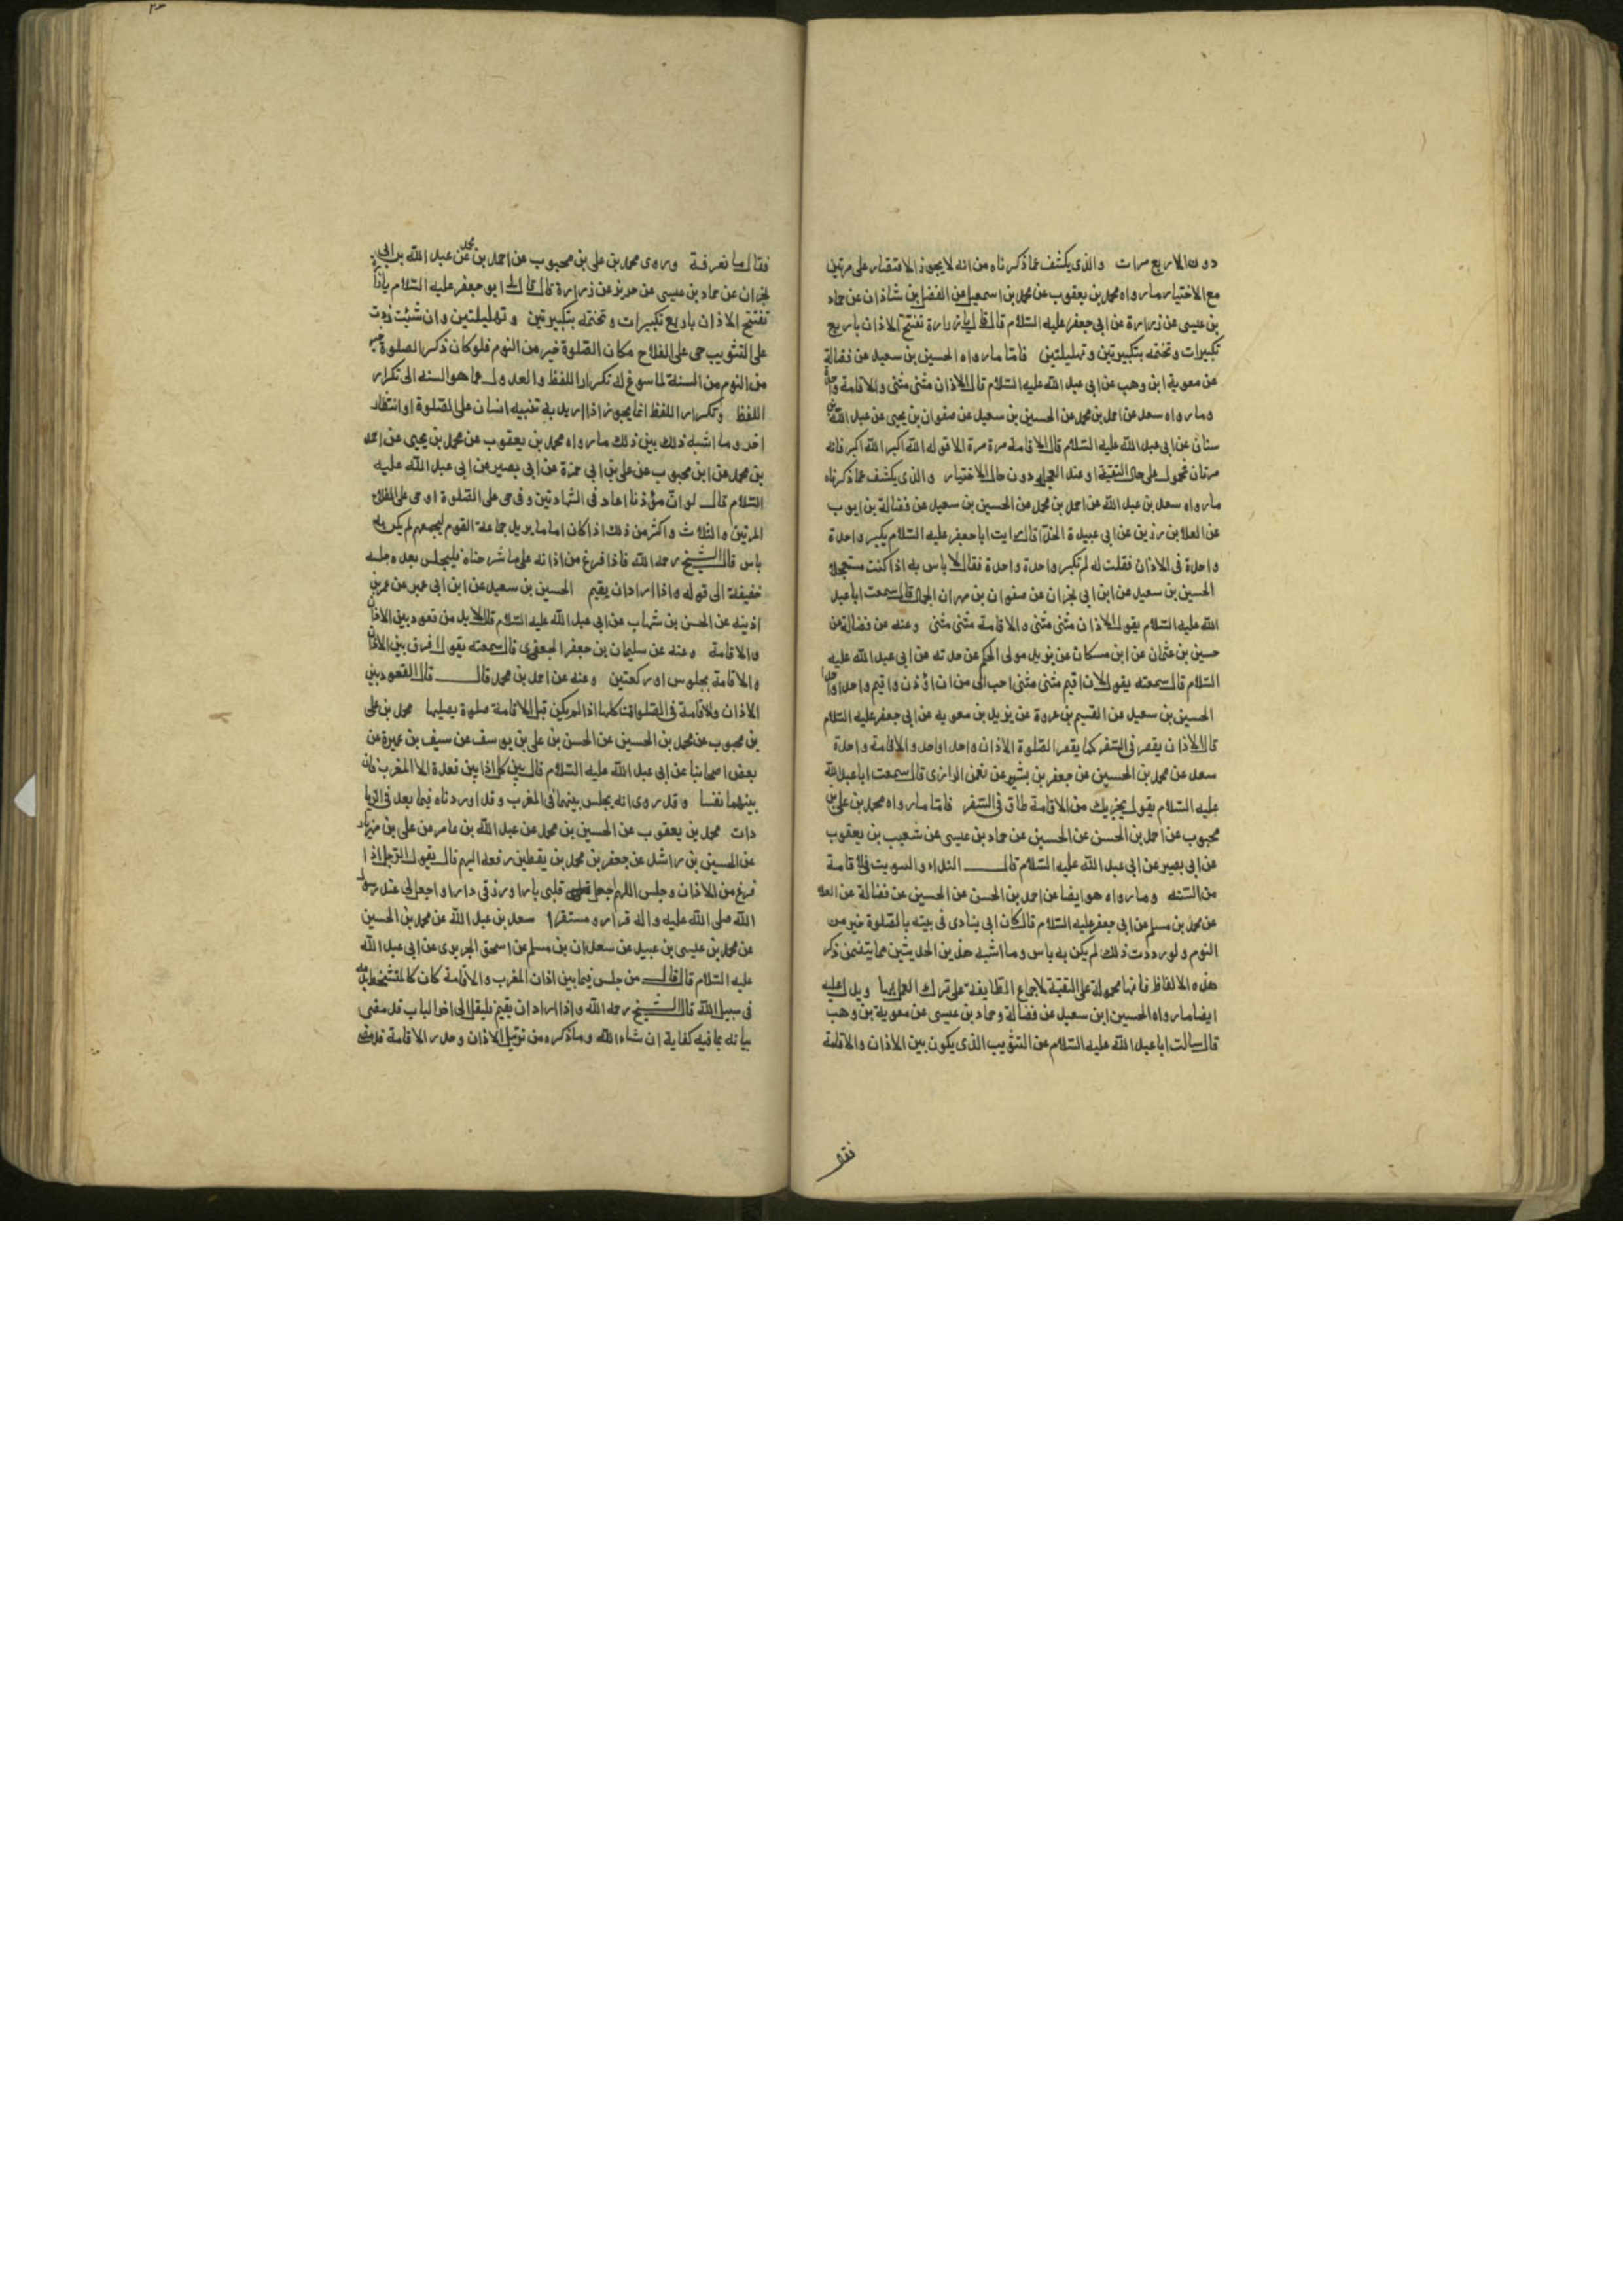 دون الاربع مرات والذى يكشف عما ذكرناه من انه لا يجوز الاقتصار على مرتين
مع الاختيار ما رواه محمد بن يعقوب عن محمد بن اسمعيل عن الفضل بن شاذان عن حماد
بن عيسى عن زرارة عن ابى جعفر عليه السلام قال قال يا زرارة تفتتح الاذان باربع
تكبيرات وتختمه بتكبيرتين وتهليلتين فاما ما رواه الحسين بن سعيد عن فضالة
عن معوية ابن وهب عن ابى عبد الله عليه السلام قال الاذان مثنى مثنى والاقامة واحدة
وما رواه سعد عن احمد بن محمد عن الحسين بن سعيد عن صفوان بن يحيى عن عبد الله بن
سنان عن ابى عبد الله عليه السلام قال الاقامة مرة مرة الا قوله الله اكبر الله اكبر فانه
مرتان فمحول على حال التقية او عند العجلة دون حال الاختيار والذى يكشف عما ذكرناه
ما رواه سعد بن عبد الله عن احمد بن محمد عن الحسين بن سعيد عن فضالة بن ايوب
عن العلا بن رزين عن ابى عبيدة الحذا قال رايت ابا جعفر عليه السلام يكبر واحدة
واحدة فى الاذان فقلت له لم تكبر واحدة واحدة فقال لا باس به اذا كنت مستعجلا
الحسين بن سعيد عن ابن ابى نجران عن صفوان بن مهران الجمال قال سمعت ابا عبد
الله عليه السلام يقول الاذان مثنى مثنى والاقامة مثنى مثنى وعنه عن فضالة عن
حسين بن عثمان عن ابن مسكان عن يزيد مولى الحكم عن حدثه عن ابى عبد الله عليه
السلام قال سمعته يقول لان اقيم مثنى مثنى احب الى من ان اؤذن واقيم واحدا واحدا
الحسين بن سعيد عن القسم بن عروة عن يزيد بن معويه عن ابى جعفر عليه السلام
قال الاذان يقصر فى السفر كما يقصر الصلوة الاذان واحدا واحد والاقامة واحدة
سعد عن محمد بن الحسين عن جعفر بن بشير عن نعمن الرازى قال سمعت ابا عبد الله
عليه السلام يقول يجزيك من الاقامة طاق فى السفر فاما ما رواه محمد بن على بن
محبوب عن احمد بن الحسن عن الحسين عن حماد بن عيسى عن شعيب بن يعقوب
عن ابى بصير عن ابى عبد الله عليه السلام قال النداء والسويت فى الاقامة
من السنه وما رواه هو ايضا عن احمد بن الحسن عن الحسين عن فضالة عن العلا
عن محمد بن مسلم عن ابى جعفر عليه السلام قال كان ابى ينادى فى بيته بالصلوة خير من
النوم ولو رددت ذلك لم يكن به باس وما اشبه هذين الحديثين مما يتضمن ذكر
هذه الالفاظ فانها محمولة على التقية لاجماع الطايفة على ترك العمل بها ويدل عليه
ايضا ما رواه الحسين ابن سعيد عن فضالة وحماد بن عيسى عن معوية بن وهب
قال سالت ابا عبد الله عليه السلام عن التثويب الذى يكون بين الاذان والاقامة
فقال ما نعرفة وروى محمد بن على بن محبوب عن احمد بن محمد عن عبد الله بن ابى
نجران عن حماد بن عيسى عن حريز عن زرارة قال قال لى ابو جعفر عليه السلام يا زرارة
تفتتح الاذان باربع تكبيرات وتختمه بتكبيرتين وتهليلتين وان شئت زدت
على التثويب حى على الفلاح مكان الصلوة خير من النوم فلو كان ذكر الصلوة خير
من النوم من السنة لما سوغ له تكرار اللفظ والعدول عما هو السنه الى تكرار
اللفظ وتكرار اللفظ انما يجوز اذا اريد به تنبيه انسان على الصلوة او انتظار
اخر وما اشبه ذلك بين ذلك ما رواه محمد بن يعقوب عن محمد بن يحيى عن احمد
بن محمد عن ابن محبوب عن على بن ابى حمزة عن ابى بصير عن ابى عبد الله عليه
السلام قال لو ان مؤذنا اعاد فى الشهادتين وفى حى على الصلوة او حى على الفلاح
المرتين والثلاث واكثر من ذلك اذا كان اماما يريد جماعة القوم ليجمعهم لم يكن به
باس قال الشيخ رحمه الله فاذا فرغ من اذانه على ما شرحناه فليجلس بعده جلسه
خفيفة الى قوله واذا اراد ان يقيم الحسين بن سعيد عن ابن ابى عمير عن عمر بن
اذينه عن الحسن بن شهاب عن ابى عبد الله عليه السلام قال لا بد من قعود بين الاذان
والاقامة وعنه عن سليمان بن جعفر الجعفرى قال سمعته يقول افرق بين الاذان
والاقامة بجلوس او ركعتين وعنه عن احمد بن محمد قال قال القعود بين
الاذان والاقامة فى الصلوات كلها اذا لم يكن قبل الاقامة صلوة يصليها محمد بن على
بن محبوب عن محمد بن الحسين عن الحسن بن على بن يوسف عن سيف بن عميرة عن
بعض اصحابنا عن ابى عبد الله عليه السلام قال بين كل اذانين قعدة الا المغرب فان
بينهما نفسا وقد روى انه يجلس بينهما فى المغرب وقد اوردناه فيما بعد فى الزيا
دات محمد بن يعقوب عن الحسين بن محمد عن عبد الله بن عامر عن على بن مهزيار
عن الحسين بن راشد عن جعفر بن محمد بن يقطين رفعه اليهم قال يقول الرجل اذا
فرغ من الاذان وجلس اللهم اجعل قلبى بارا ورزقى دارا واجعل لى عند رسول
الله صلى الله عليه واله قرارو مستقرا سعد بن عبد الله عن محمد بن الحسين
عن محمد بن عيسى بن عبيد عن سعدان بن مسلم عن اسحق الجريرى عن ابى عبد الله
عليه السلام قال قال من جلس فيما بين اذان المغرب والاقامة كان كالمتشحط بدمه
فى سبيل الله قال الشيخ رحمه الله واذا اراد ان يقيم فليقل الى اخر الباب قد مضى
بيانه بما فيه كفاية ان شاء الله وما ذكره من ترتيل الاذان وحدر الاقامة